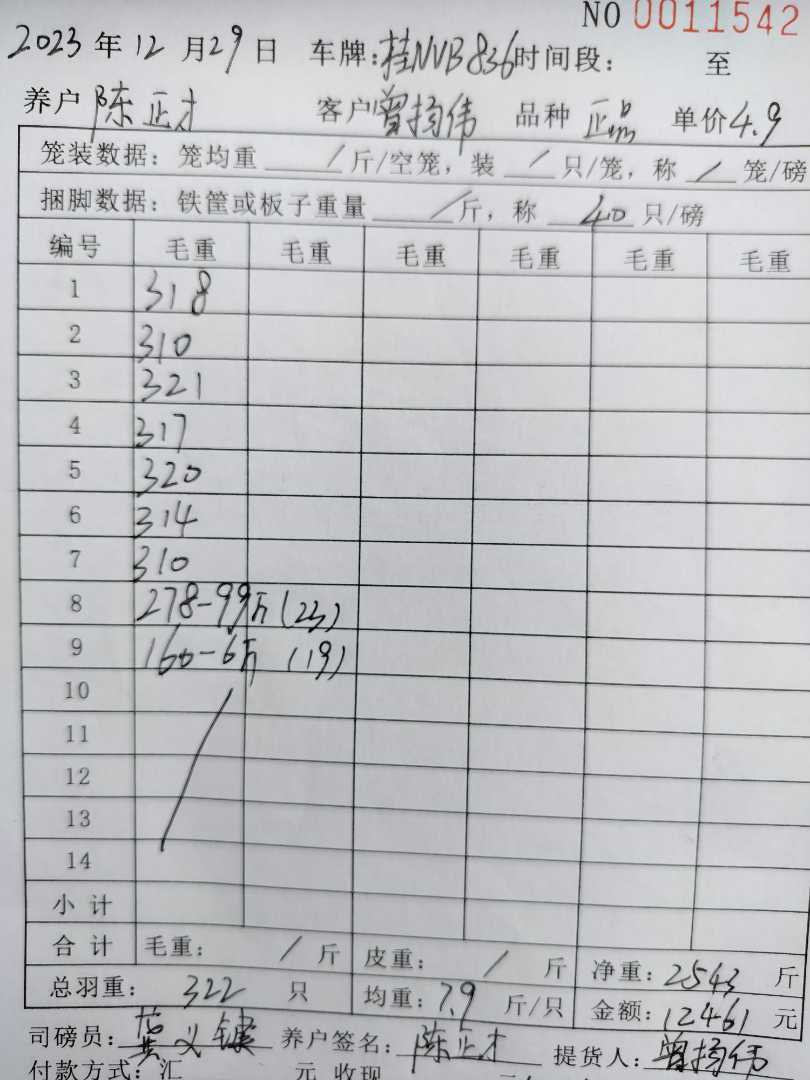 NO 0011542
2023 年 12 月 29 日 车牌:桂NVB836 时间段: 至
养户 陈正才 客户 曾扬伟 品种 正品 单价 4.9
笼装数据: 笼均重 / 斤/空笼, 装 / 只/笼, 称 / 笼/磅
捆脚数据: 铁筐或板子重量 / 斤, 称 40 只/磅
编号 毛重 毛重 毛重 毛重 毛重 毛重
1 318
2 310
3 321
4 317
5 320
6 314
7 310
8 278-99斤(23)
9 160-6斤 (19)
10
11
12
13
14
小计
合计 毛重: / 斤 皮重: / 斤 净重: 2543 斤
总羽重: 322 只 均重: 7.9 斤/只 金额: 12461 元
司磅员: 养户签名: 陈正才 提货人: 曾扬伟
付款方式: 汇 元 收现